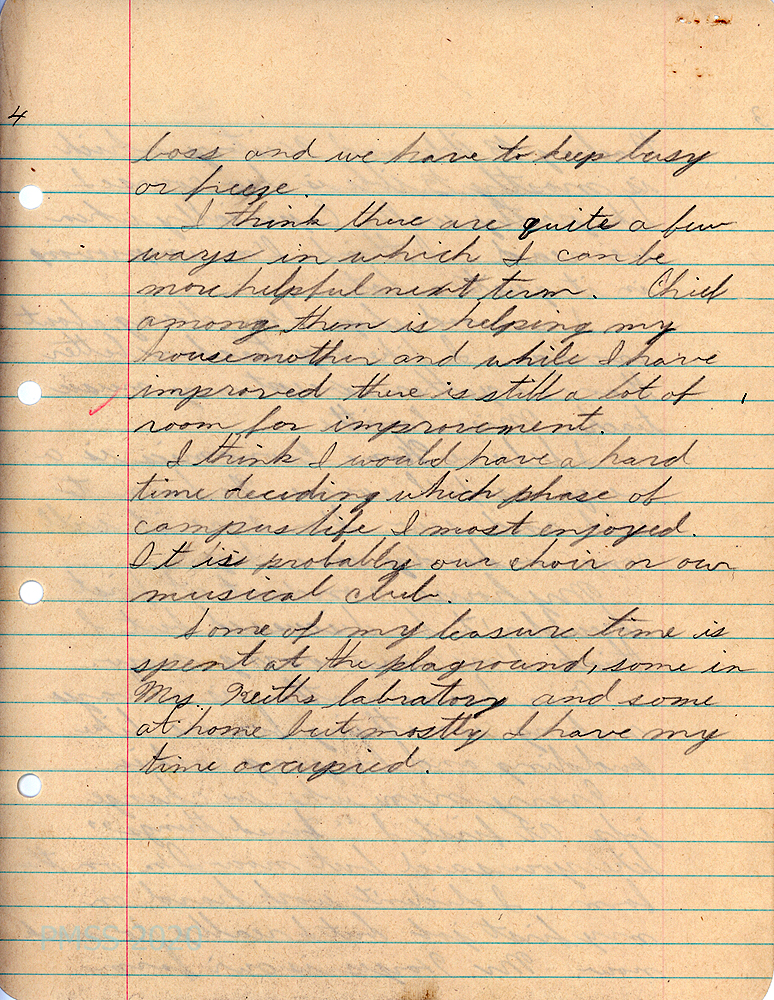 4
boss and we have to keep busy
or freeze.
I think there are quite a few
ways in which I can be
more helpful next term. Chief
among them is helping my
housemother and while I have
improved there is still a lot of
room for improvement.
I think I would have a hard
time deciding which phase of
campus life I most enjoyed.
It is probably our choir or our
musical club.
Some of my leasure time is
spent at the plaground, some in
Mr. Keiths labratory and some
at home but mostly I have my
time occupied.